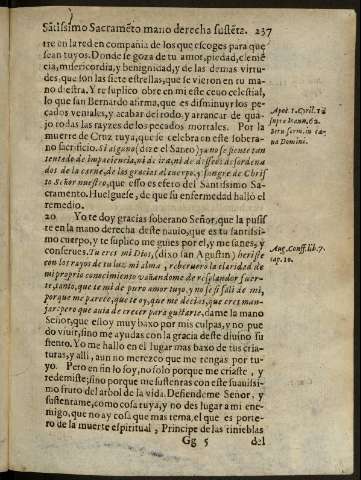 Sãtissimo Sacramẽto mano derecha sustẽta. 237
ire en la red en compañia de los que escoges para que
sean tuyos. Donde se goza de tu amor, piedad, clemẽ
cia, misericordia, y benignidad, y de las demas virtu-
des, que son las siete estrellas, que se vieron en tu ma
no diestra. Y te suplico obre en mi este ceuo celestial,
lo que san Bernardo afirma, que es disminuyr los pe
cados veniales, y acabar del todo, y arrancar de qua
jo todas las rayzes de los pecados mortales. Por la
muerte de Cruz tuya, que se celebra en este sobera-
no sacrificio. Si alguno (dize el Santo) ya no se siente tan
tentado de impaciencia, ni de ira, ni de desseos desordena
dos de la carne, de las gracias al cuerpo, y sangre de Chris
to Señor nuestro, que esso es efeto del Santissimo Sa-
cramento. Huelguese, de que su enfermedad halló el
remedio.
Apoc. 1. Cyril. 12
supra Ioann. 62.
Bern serm. in cæ
na Domini.
20 Yo te doy gracias soberano Señor, que la pusis
te en la mano derecha deste nauio, que es tu santissi-
mo cuerpo, y te suplico me guies por el, y me sanes, y
conserues. Tu eres mi Dios, (dixo san Agustin) heriste
con los rayos de tu luz mi alma, reberuero la claridad de
mi proprio conocimiento vañandome de resplandor fuer-
te, tanto, que te mi de puro amor tuyo, y no se si sali de mi,
porque me parece, que te oy, que me dezias, que eres man-
jar: pero que auia de crecer para gustarte, dame la mano
Señor, que estoy muy baxo por mis culpas, y no pue
do viuir, sino me ayudas con la gracia deste diuino su
stento. Yo me hallo en el lugar mas baxo de tus cria-
turas, y alli, aun no merezco que me tengas por tu-
yo. Pero en fin lo soy, no solo porque me criaste, y
redemiste; sino porque me sustentas con este suauissi-
mo fruto del arbol de la vida. Defiendeme Señor, y
sustentame, como cosa tuya, y no des lugar a mi ene-
migo, que no ay cosa que mas tema, el que es porte-
ro de la muerte espiritual, Principe de las tinieblas
Aug. Conff. lib. 7.
cap. 10.
Gg 5 del